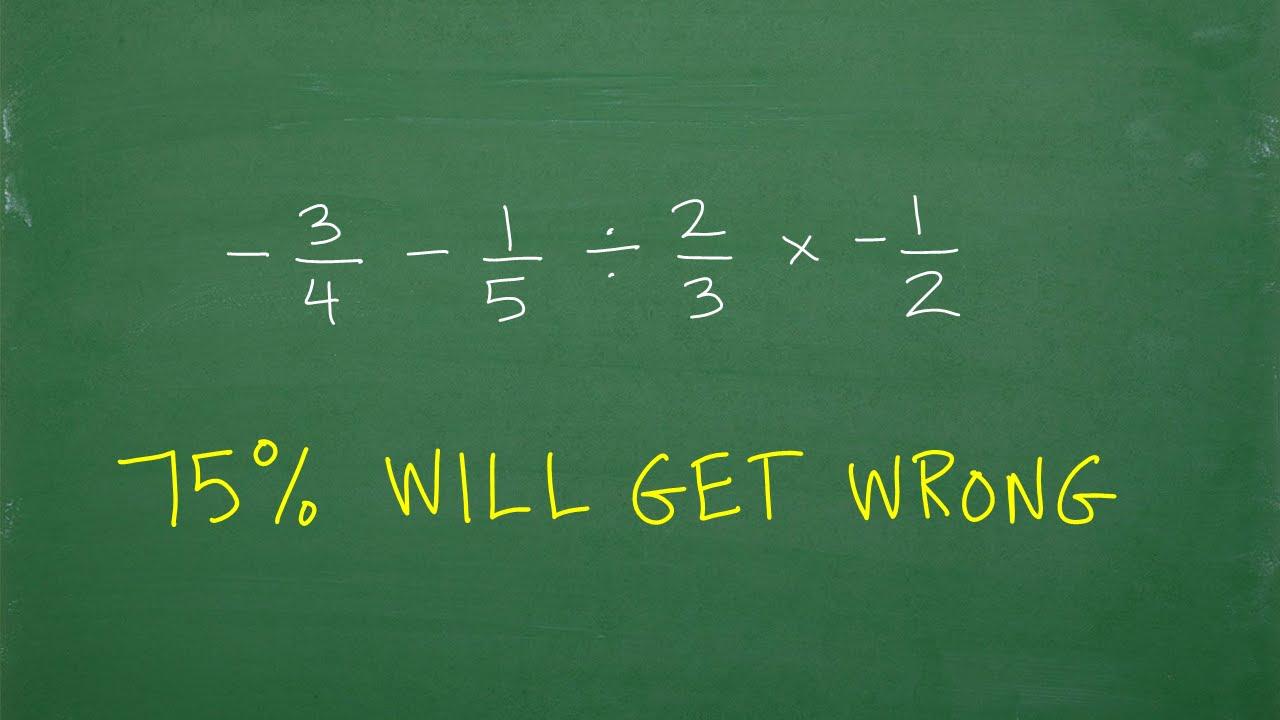 - 3/4 - 1/5 ÷ 2/3 × - 1/2
75% WILL GET WRONG